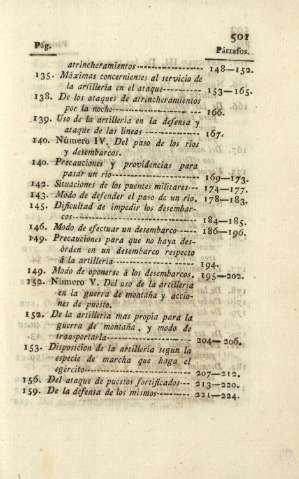 501
Pág. Párrafos.
atrincheramientos 148—152.
135. Máximas concernientes al servicio de
la artillería en el ataque 153—165.
138. De los ataques de atrincheramientos
por la noche 166.
139. Uso de la artillería en la defensa y
ataque de las líneas 167.
140. Número IV. Del paso de los rios
y desembarcos.
140. Precauciones y providencias para
pasar un rio 169—173.
142. Situaciones de los puentes militares 174—177.
143. Modo de defender el paso de un rio. 178—183.
145. Dificultad de impedir los desembar-
cos 184—185.
146. Modo de efectuar un desembarco 186—196.
149. Precauciones para que no haya des-
órden en un desembarco respecto
á la artillería 194.
149. Modo de oponerse á los desembarcos. 195—202.
152. Número V. Del uso de la artillería
en la guerra de montaña y accio-
nes de puesto.
152. De la artillería mas propia para la
guerra de montaña, y modo de
trasportarla 204—206.
153. Disposicion de la artillería segun la
especie de marcha que haga el
egército 207—212.
156. Del ataque de puestos fortificados 213—220.
159. De la defensa de los mismos 221—224.